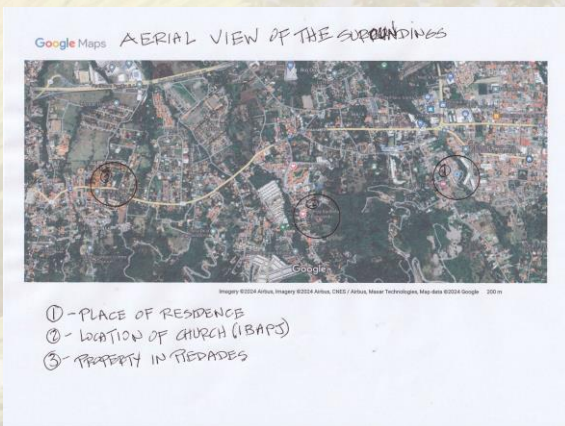 Google Maps AERIAL VIEW OF THE SURROUNDINGS
Google
Imagery ©2024 Airbus, Imagery ©2024 Airbus, CNES / Airbus, Maxar Technologies, Map data ©2024 Google 200 m
① - PLACE OF RESIDENCE
② - LOCATION OF CHURCH (IBAPJ)
③ - PROPERTY IN PIEDADES